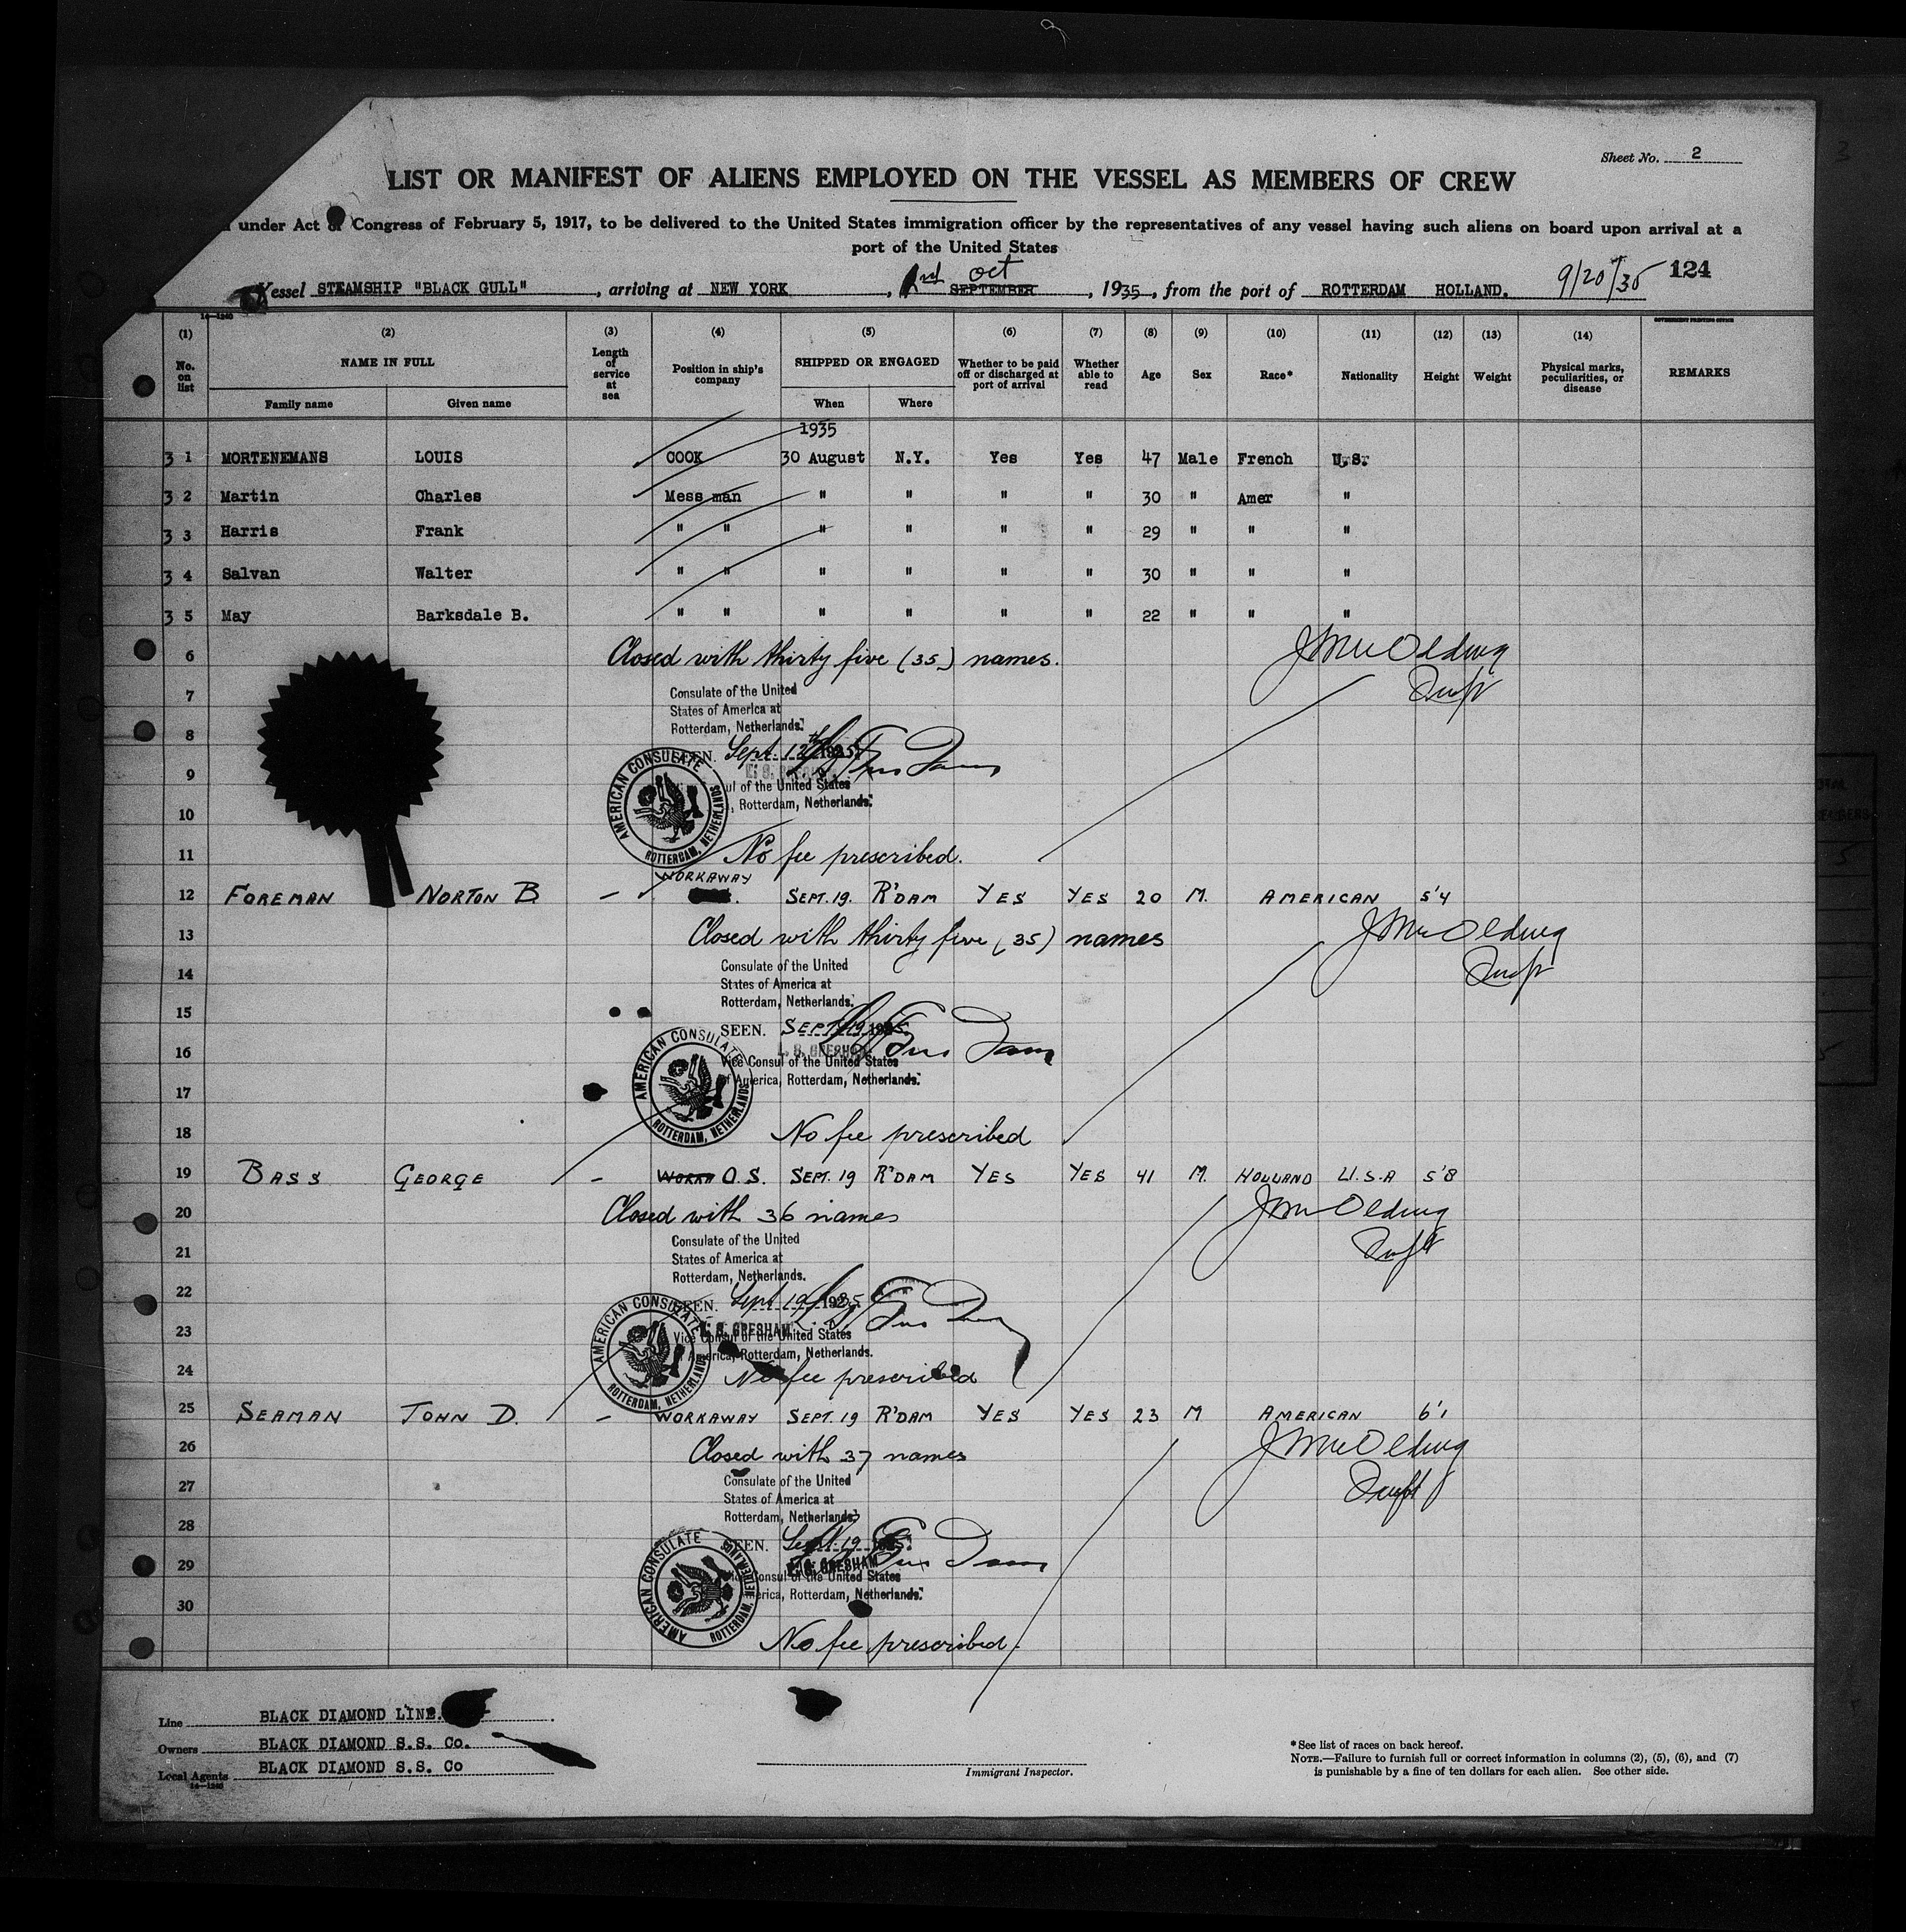 Sheet No. 2
LIST OR MANIFEST OF ALIENS EMPLOYED ON THE VESSEL AS MEMBERS OF CREW
under Act of Congress of February 5, 1917, to be delivered to the United States immigration officer by the representatives of any vessel having such aliens on board upon arrival at a
port of the United States
Vessel STEAMSHIP "BLACK GULL", arriving at NEW YORK, 2nd Oct SEPTEMBER, 1935, from the port of ROTTERDAM HOLLAND. 9/20/35 124
14-1240
GOVERNMENT PRINTING OFFICE
(1) (2) (3) (4) (5) (6) (7) (8) (9) (10) (11) (12) (13) (14)
No. on list NAME IN FULL Length of service at sea Position in ship's company SHIPPED OR ENGAGED Whether to be paid off or discharged at port of arrival Whether able to read Age Sex Race* Nationality Height Weight Physical marks, peculiarities, or disease REMARKS
Family name Given name When Where
1935
3 1 MORTENEMANS LOUIS COOK 30 August N.Y. Yes Yes 47 Male French U.S.
3 2 Martin Charles Mess man " " " " 30 " Amer "
3 3 Harris Frank " " " " " " 29 " " "
3 4 Salvan Walter " " " " " " 30 " " "
3 5 May Barksdale B. " " " " " " 22 " " "
6 Closed with thirty five (35) names.
7 Consulate of the United
States of America at
8 Rotterdam, Netherlands.
SEEN. Sept. 12th 1935
9 ul of the United States
, Rotterdam, Netherlands.
AMERICAN CONSULATE ROTTERDAM, NETHERLANDS
10
11 No fee prescribed.
WORKAWAY
12 FOREMAN NORTON B — SEPT. 19. R'DAM YES YES 20 M. AMERICAN 5'4
13 Closed with thirty five (35) names
14 Consulate of the United
States of America at
Rotterdam, Netherlands.
15 SEEN. SEPT. 19 1935
16 E. S. GRESHAM
Vice Consul of the United States
of America, Rotterdam, Netherlands.
AMERICAN CONSULATE ROTTERDAM, NETHERLANDS
17
18 No fee prescribed
19 BASS GEORGE — WORKA O.S. SEPT. 19 R'DAM YES YES 41 M. HOLLAND U.S.A 5'8
20 Closed with 36 names
21 Consulate of the United
States of America at
Rotterdam, Netherlands.
22 SEEN. Sept 19 1935
23 GRESHAM
Vice Consul of the United States
of America, Rotterdam, Netherlands.
AMERICAN CONSULATE ROTTERDAM, NETHERLANDS
24 No fee prescribed
25 SEAMAN JOHN D. — WORKAWAY SEPT. 19 R'DAM YES YES 23 M AMERICAN 6'1
26 Closed with 37 names
27 Consulate of the United
States of America at
Rotterdam, Netherlands
28 SEEN. Sept. 19
29 GRESHAM
Consul of the United States
America, Rotterdam, Netherlands.
AMERICAN CONSULATE ROTTERDAM, NETHERLANDS
30
No fee prescribed.
Line BLACK DIAMOND LINE.
Owners BLACK DIAMOND S.S. Co.
Local Agents BLACK DIAMOND S.S. Co
14-1240
Immigrant Inspector.
*See list of races on back hereof.
NOTE.—Failure to furnish full or correct information in columns (2), (5), (6), and (7)
is punishable by a fine of ten dollars for each alien. See other side.